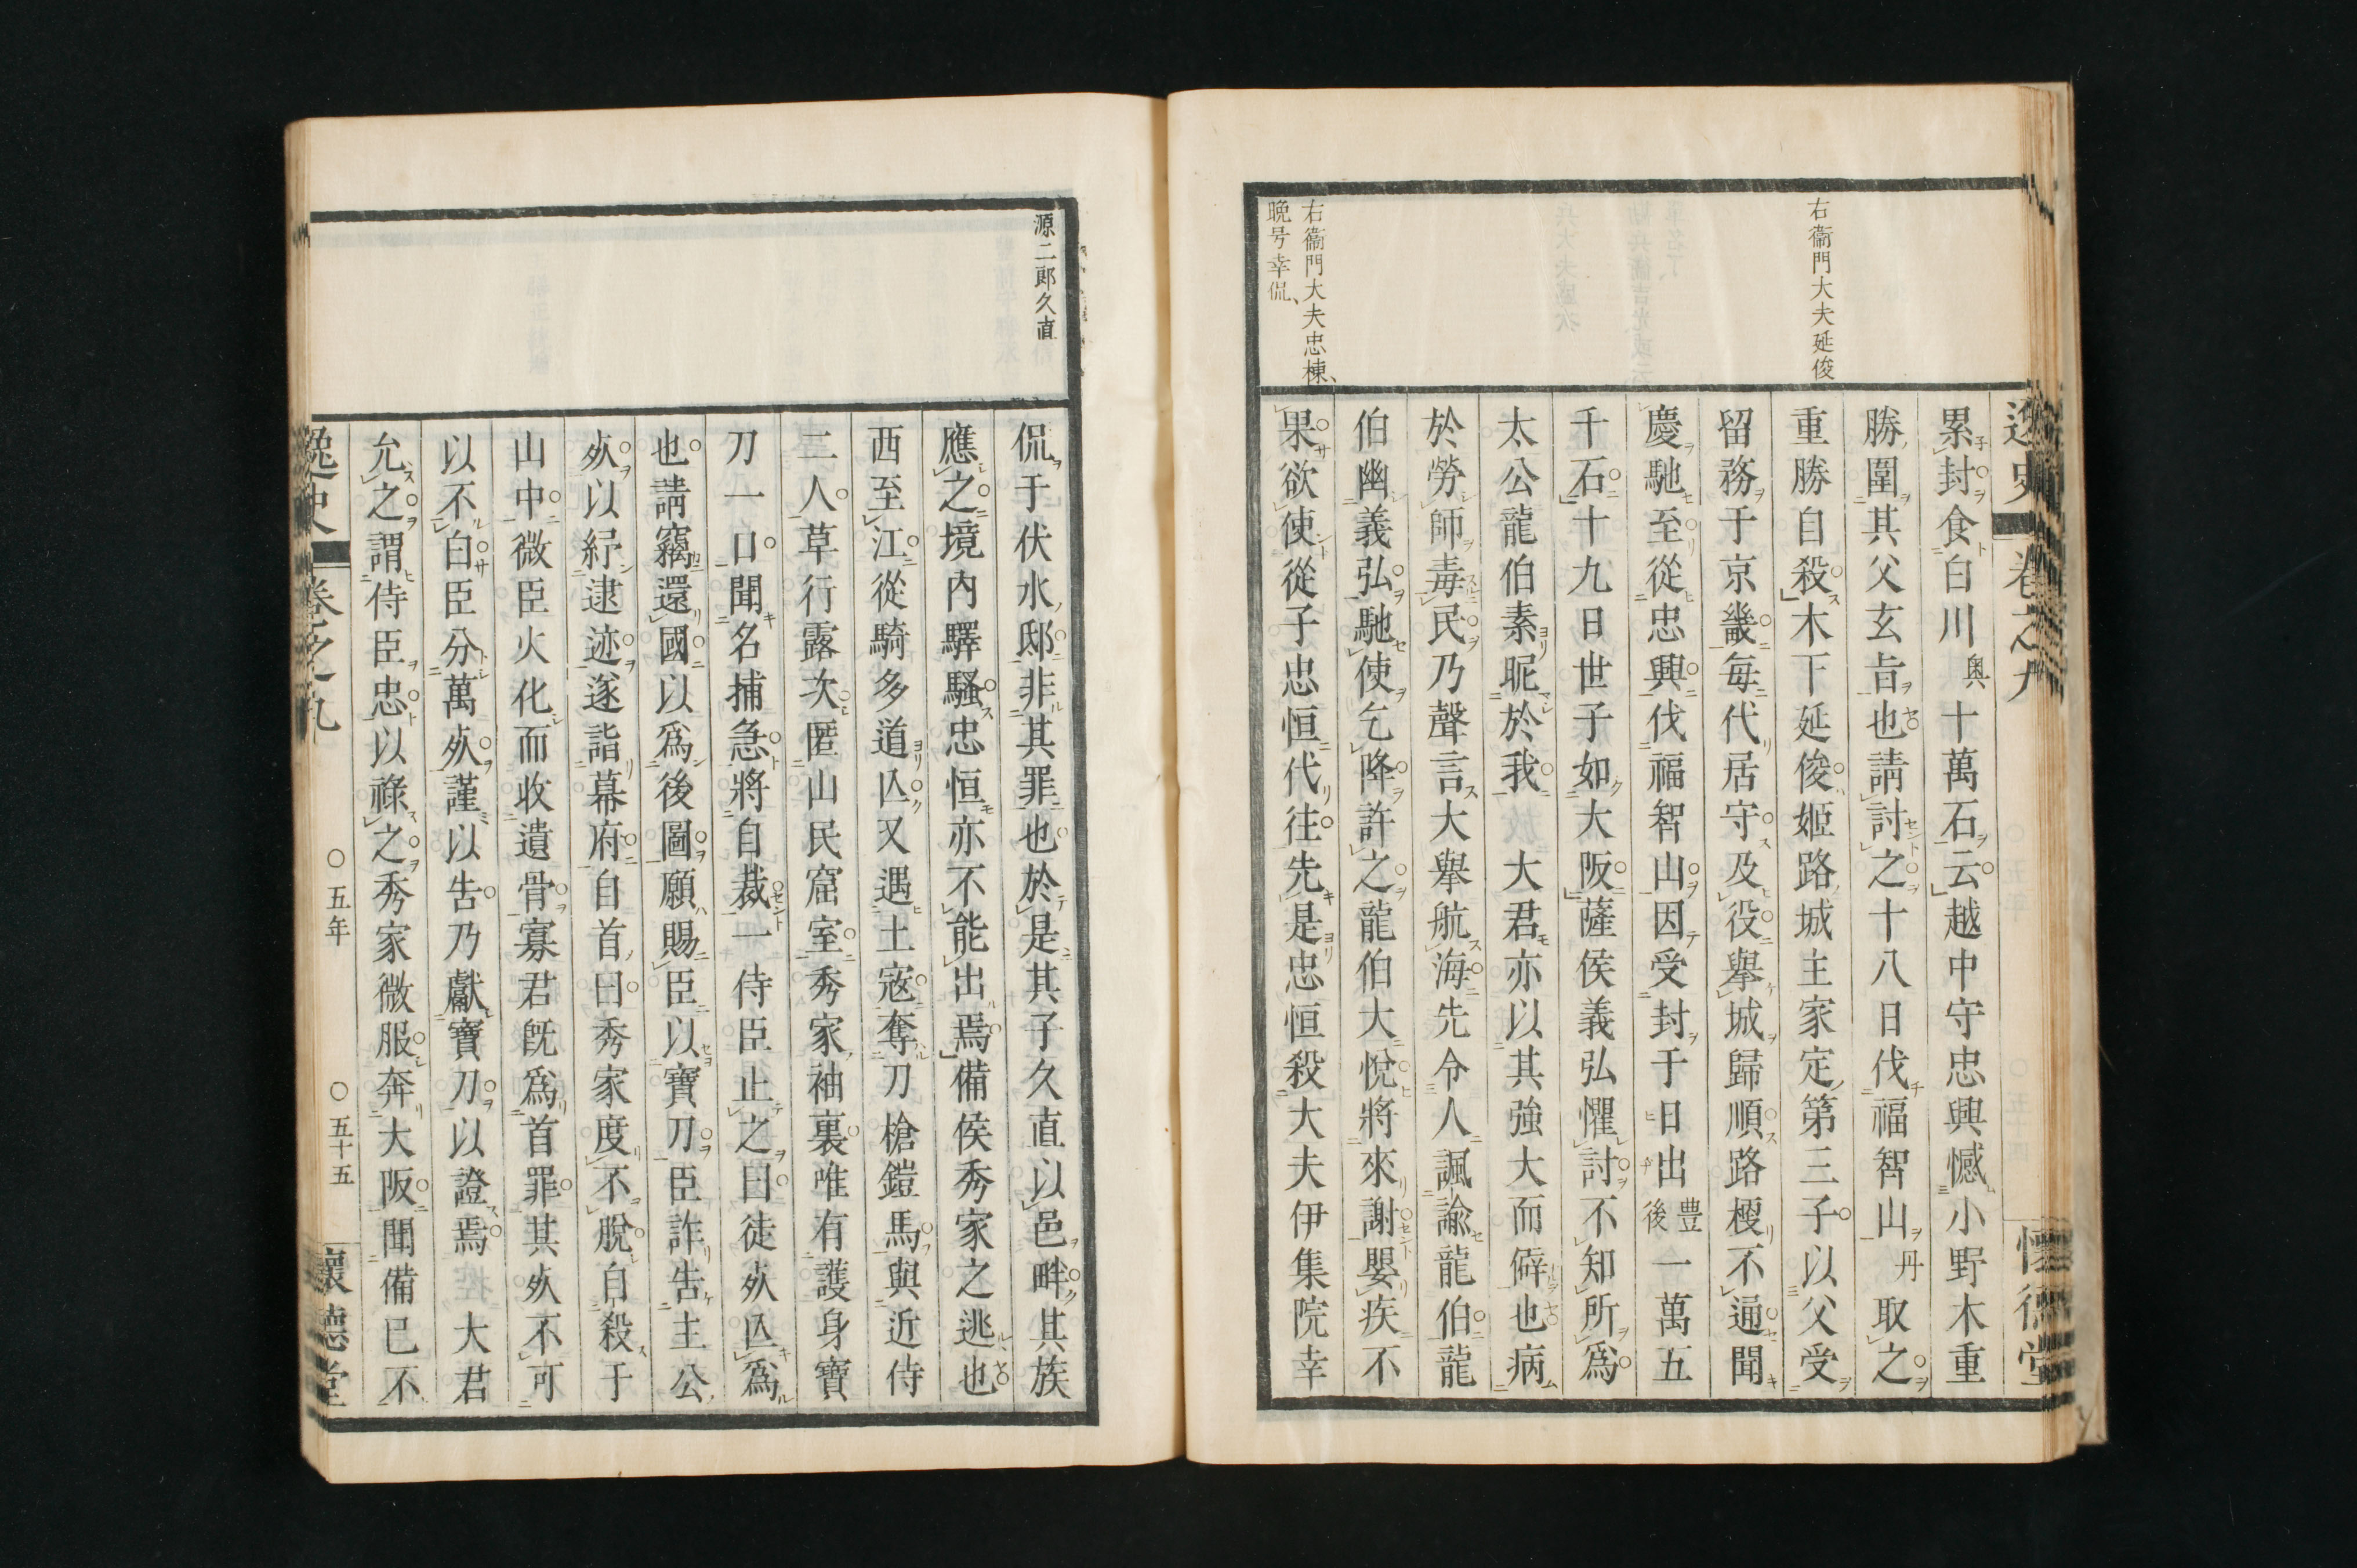 逸史 卷之九 懷德堂
右衞門大夫延俊
右衞門大夫忠棟、
晩号幸侃、
累封食白川奥十萬石云越中守忠興憾小野木重
勝圍其父玄旨也請討之十八日伐福智山丹取之
重勝自殺木下延俊姬路城主家定第三子以父受
留務于京畿每代居守及役擧城歸順路梗不通聞
慶馳至從忠興伐福智山因受封于日出豊後一萬五
千石十九日世子如大阪薩侯義弘懼討不知所爲
太公龍伯素昵於我 大君亦以其強大而僻也病
於勞師毒民乃聲言大擧航海先令人諷諭龍伯龍
伯幽義弘馳使乞降許之龍伯大悅將來謝嬰疾不
果欲使從子忠恒代往先是忠恒殺大夫伊集院幸
源二郎久直
侃于伏水邸非其罪也於是其子久直以邑畔其族
應之境內驛騷忠恒亦不能出焉備侯秀家之逃也
西至江從騎多道亾又遇土寇奪刀槍鎧馬與近侍
二人草行露次匿山民窟室秀家袖裏唯有護身寶
刀一口聞名捕急將自裁一侍臣止之曰徒𣦸亾爲
也請竊還國以爲後圖願賜臣以寶刀臣詐告主公
𣦸以紓逮迹遂詣幕府自首曰秀家度不脫自殺于
山中微臣火化而收遺骨寡君旣爲首罪其𣦸不可
以不白臣分萬𣦸謹以告乃獻寶刀以證焉 大君
允之謂侍臣忠以祿之秀家微服奔大阪聞備已不
逸史 卷之九 〇五年 〇五十五 懷德堂